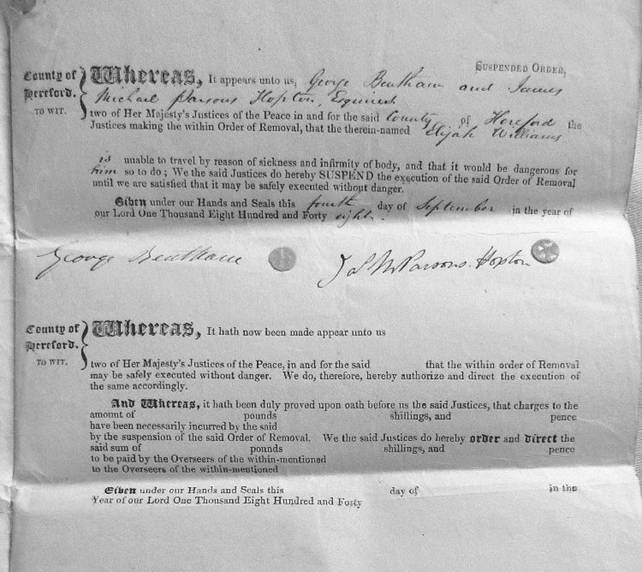 Suspended Order,
County of Hereford. TO WIT. } Whereas, It appears unto us, George Bentham and James
Michael Parsons Hopton, Esquires
two of Her Majesty's Justices of the Peace in and for the said County of Hereford the
Justices making the within Order of Removal, that the therein-named Elijah Williams
is unable to travel by reason of sickness and infirmity of body, and that it would be dangerous for
him so to do; We the said Justices do hereby SUSPEND the execution of the said Order of Removal
until we are satisfied that it may be safely executed without danger.
Given under our Hands and Seals this fourth day of September in the year of
our Lord One Thousand Eight Hundred and Forty eight.
George Bentham
J S M Parsons. Hopton
County of Hereford. TO WIT. } Whereas, It hath now been made appear unto us
two of Her Majesty's Justices of the Peace, in and for the said that the within order of Removal
may be safely executed without danger. We do, therefore, hereby authorize and direct the execution of
the same accordingly.
And Whereas, it hath been duly proved upon oath before us the said Justices, that charges to the
amount of pounds shillings, and pence
have been necessarily incurred by the said
by the suspension of the said Order of Removal. We the said Justices do hereby order and direct the
said sum of pounds shillings, and pence
to be paid by the Overseers of the within-mentioned
to the Overseers of the within-mentioned
Given under our Hands and Seals this day of in the
Year of our Lord One Thousand Eight Hundred and Forty